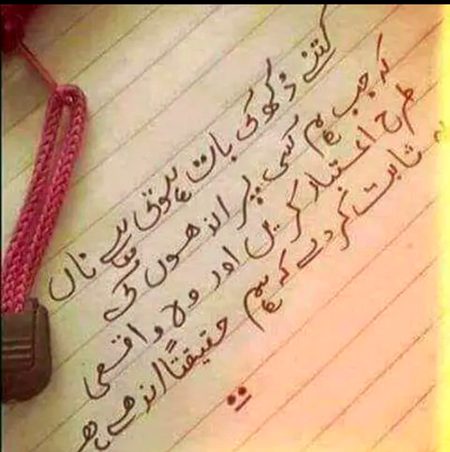 کتنے دُکھ کی بات ہوتی ہے ناں
کہ جب ہم کسی پر اندھوں کی
طرح اعتبار کریں اور وہ واقعی
یہ ثابت کر دے کہ ہم حقیقتاً اندھے ہیں